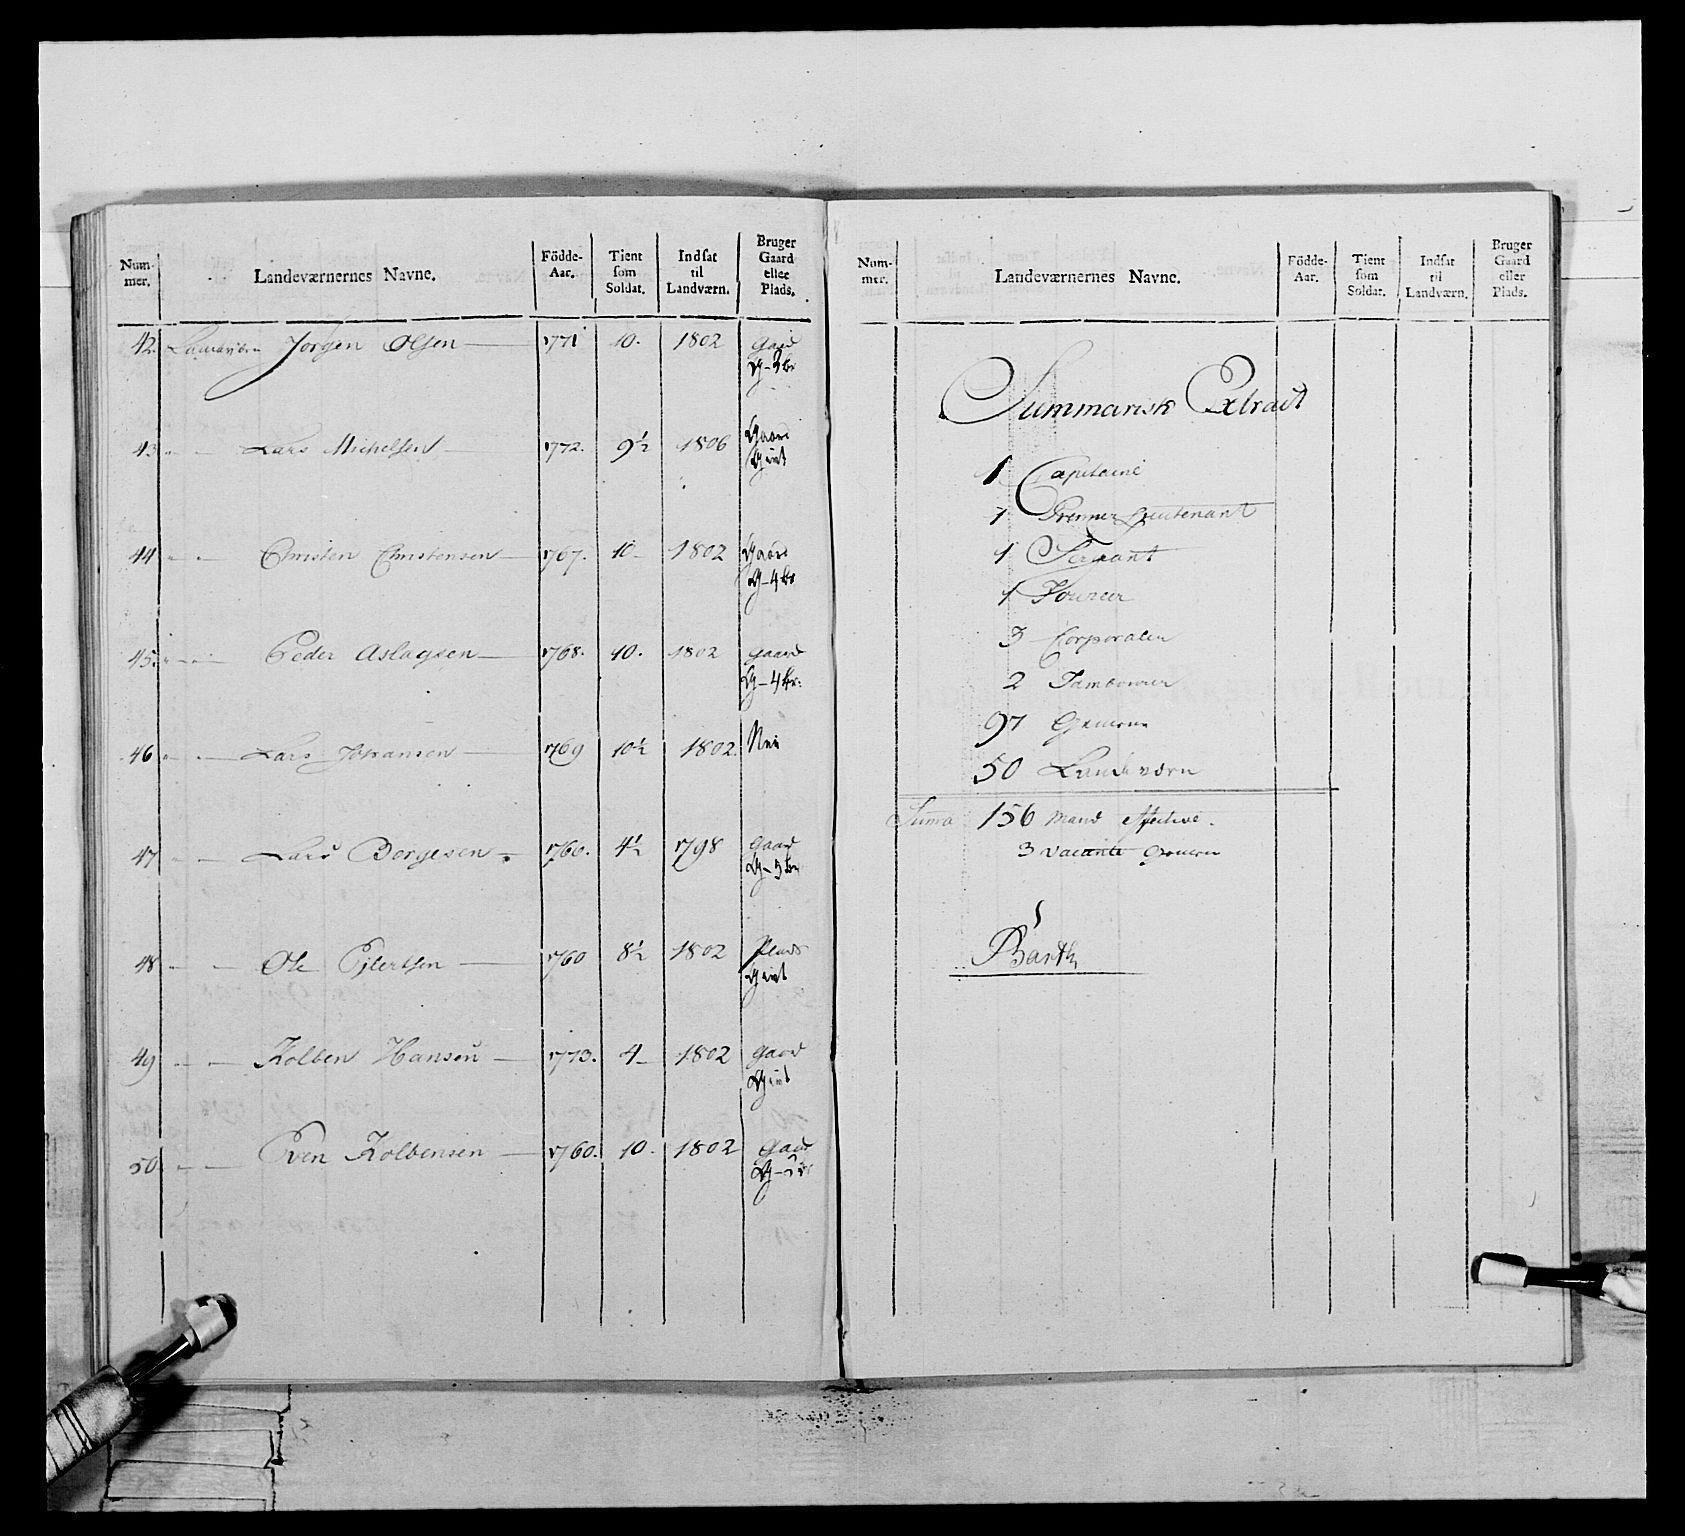 Num-mer. Landeværnernes Navne. Födde-Aar. Tient som Soldat. Indsat til Landværn. Bruger Gaard eller Plads.
42. Jorgen Olsen 1771 10. 1802 Gaard
43 Lars Michelsen 1772. 9½ 1806 Gaard
Givt
44 Christen Christensen 1767. 10 1802 Gaard
G - 4 br
45. Peder Aslagsen 1768. 10. 1802 Gaard
G - 4 br:
46 Lars Johansen 1769 10½ 1802. Nei
47 Lars Borgesen 1760. 4½ 1798 Gaard
G - 5 br
48 Ole Ejlertsen 1760 8½ 1802 Plads
Givt
49 Kolben Hansen 1773. 4 1802 Gaard
Givt
50 Even Kolbensen 1760. 10. 1802 Gaard
Num-mer. Landeværnernes Navne. Födde-Aar. Tient som Soldat. Indsat til Landværn. Bruger Gaard eller Plads.
Summarisk Extract
1 Capitaine
1 Premier Lieutenant
1 Sergeant
1 Fourier
3 Corporaler
2 Tambourer
97 Gemene
50 Landeværn
Suma 156 Mand effective.
3 vacante Gemene
Barth